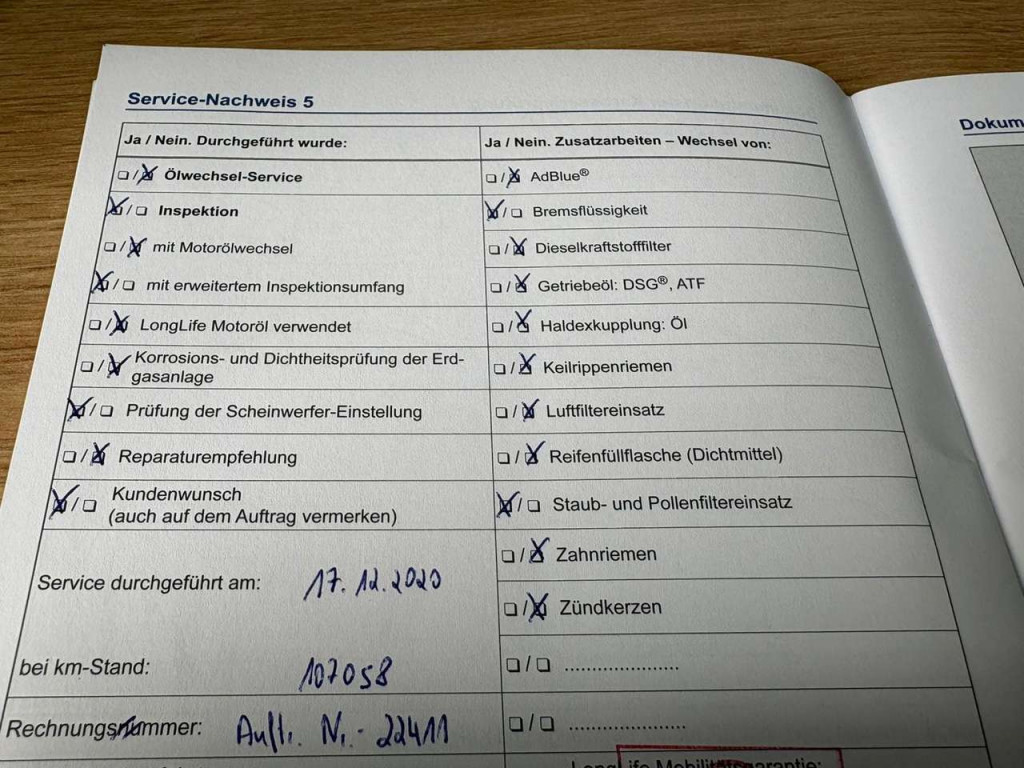 Service-Nachweis 5
Dokum
Ja / Nein. Durchgeführt wurde:
☐/☒ Ölwechsel-Service
☒/☐ Inspektion
☐/☒ mit Motorölwechsel
☒/☐ mit erweitertem Inspektionsumfang
☐/☒ LongLife Motoröl verwendet
☐/☒ Korrosions- und Dichtheitsprüfung der Erd-
gasanlage
☒/☐ Prüfung der Scheinwerfer-Einstellung
☐/☒ Reparaturempfehlung
☒/☐ Kundenwunsch
(auch auf dem Auftrag vermerken)
Service durchgeführt am: 17.12.2020
bei km-Stand: 107058
Rechnungsnummer: Auftr. Nr. - 22411
Ja / Nein. Zusatzarbeiten – Wechsel von:
☐/☒ AdBlue®
☒/☐ Bremsflüssigkeit
☐/☒ Dieselkraftstofffilter
☐/☒ Getriebeöl: DSG®, ATF
☐/☒ Haldexkupplung: Öl
☐/☒ Keilrippenriemen
☐/☒ Luftfiltereinsatz
☐/☒ Reifenfüllflasche (Dichtmittel)
☒/☐ Staub- und Pollenfiltereinsatz
☐/☒ Zahnriemen
☐/☒ Zündkerzen
☐/☐ .....................
☐/☐ .....................
LongLife Mobilitätsgarantie: